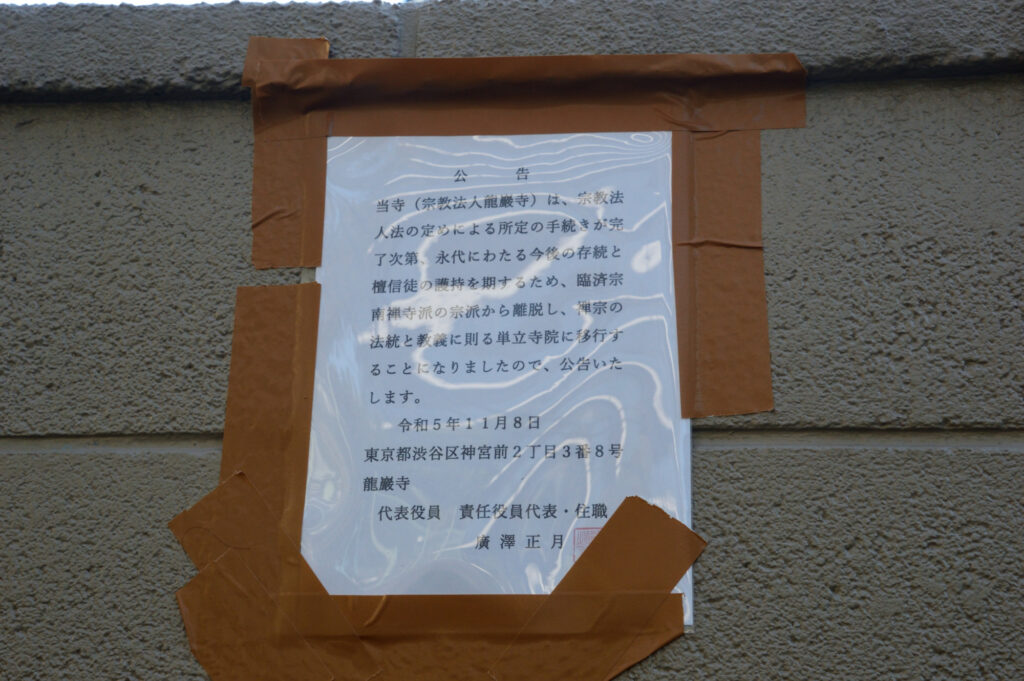 公　告
当寺（宗教法人龍巌寺）は、宗教法
人法の定めによる所定の手続きが完
了次第、永代にわたる今後の存続と
檀信徒の護持を期するため、臨済宗
南禅寺派の宗派から離脱し、禅宗の
法統と教義に則る単立寺院に移行す
ることになりましたので、公告いた
します。
令和５年１１月８日
東京都渋谷区神宮前２丁目３番８号
龍巌寺
代表役員　責任役員代表・住職
廣澤正月